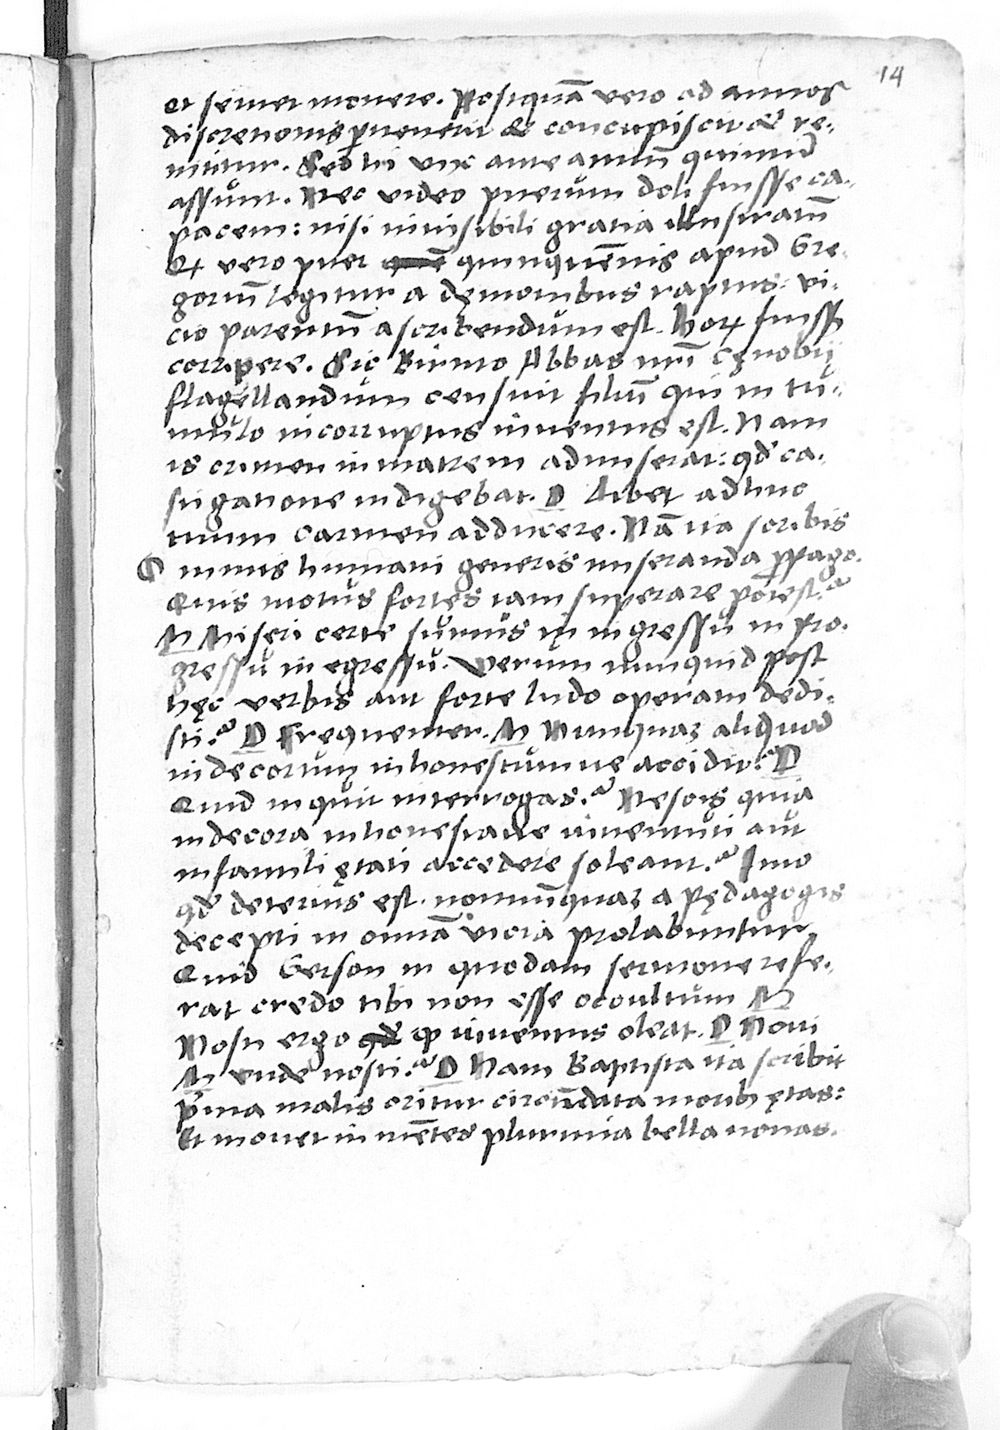 14
et semet monere. Postquā vero ad annos
discretionis pervenerit & concupiscit & re-
nititur. Sed hi vix ante annū quintū
assunt. Nec video puerum doli fuisse ca-
pacem: nisi invisibili gratia illustratū
Et vero puer quinquēnis apud Gre-
goriū legitur a dęmonibus raptus: vi-
cio parentū ascribendum est. Hoꝝ fuisse
corripere. Sic Abbas nr̄i cęnobij
flagellandum censuit filiū qui in tu-
mulo incorruptus inventus est. Nam
is crimen in matrem admiserat: qd ca-
stigatione indigebat. D Libet adhuc
tuum carmen adducere. Nā ita scribis
O nimis humani generis miseranda ppago.
Quis motus fortes iam superare potest?
M Miseri certe sumus in ingressu in pro-
gressu in egressu. Verum nunquid post
hęc verbis aut forte ludo operam dedi-
sti? D Frequenter. M Nunquaꝫ aliquod
indecorum inhonestumve accidit? D
Quid inquit interrogas? Nescis quia
indecora inhonestave iuventuti aut
infantili ętati accedere soleant? Imo
qd deterius est. nonnūquaꝫ a pędagogis
decepti in omnā vicia prolabuntur
Quid Gerson in quodam sermone refe-
rat credo tibi non esse occultum M
Nosti ergo qd iuventus oleat. D Novi
M unde nosti? D Nam Baptista ita scribit
Pͥma malis oritur circūdata morib; ętas:
Et movet in mētes plurima bella novas.